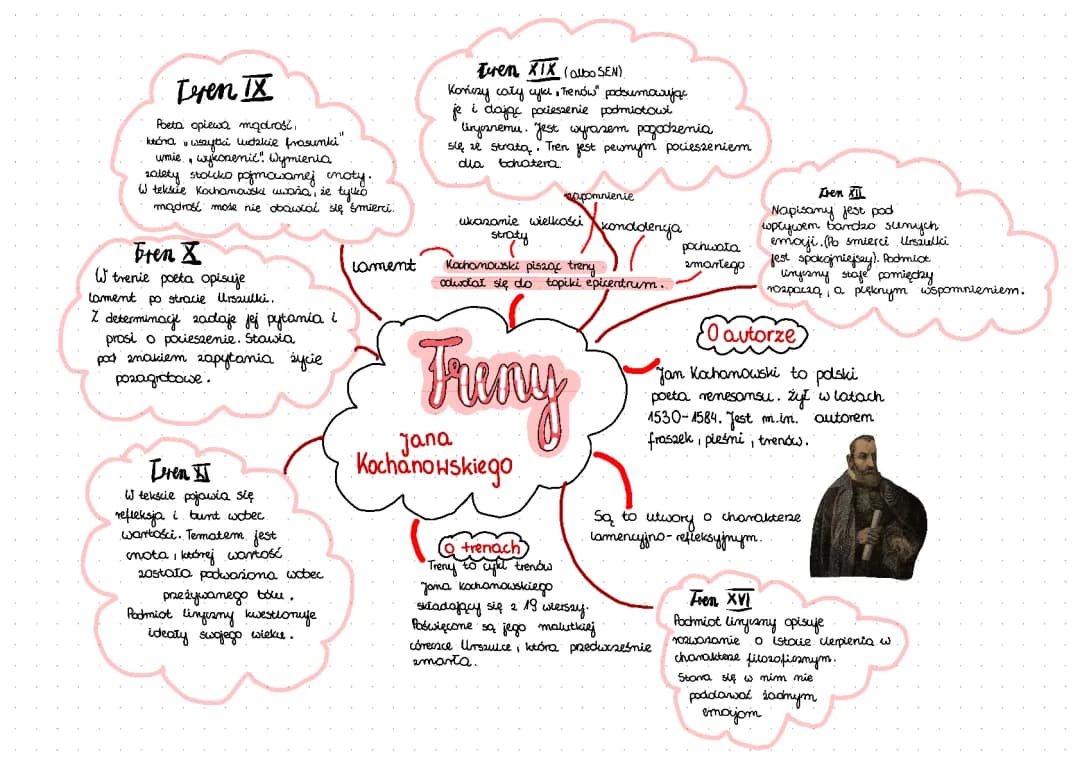 Treny
Jana
Kochanowskiego
Tren IX
Poeta opiewa mądrość,
która „wszytki ludzkie frasunki"
umie „wykorzenić". Wymienia
zalety stoicko pojmowanej cnoty.
W tekście Kochanowski uważa, że tylko
mądrość może nie obawiać się śmierci.
Tren XIX (albo SEN)
Kończy cały cykl „Trenów" podsumowując
je i dając pocieszenie podmiotowi
lirycznemu. Jest wyrazem pogodzenia
się ze stratą. Tren jest pewnym pocieszeniem
dla bohatera.
Tren XII
Napisany jest pod
wpływem bardzo silnych
emocji. (Po śmierci Urszulki
jest spokojniejszy). Podmiot
liryczny staje pomiędzy
rozpaczą, a pięknym wspomnieniem.
napomnienie
ukazanie wielkości
straty
kondolencja
pochwała
zmarłego
lament
Kochanowski pisząc treny
odwołał się do topiki epicentrum.
Tren X
W trenie poeta opisuje
lament po stracie Urszulki.
Z determinacją zadaje jej pytania i
prosi o pocieszenie. Stawia
pod znakiem zapytania życie
pozagrobowe.
O autorze
Jan Kochanowski to polski
poeta renesansu. Żył w latach
1530-1584. Jest m.in. autorem
fraszek, pieśni, trenów.
Tren XI
W tekście pojawia się
refleksja i bunt wobec
wartości. Tematem jest
cnota, której wartość
została podważona wobec
przeżywanego bólu.
Podmiot liryczny kwestionuje
ideały swojego wieku.
Są to utwory o charakterze
lamencyjno-refleksyjnym.
o trenach
Treny to cykl trenów
Jana Kochanowskiego
składający się z 19 wierszy.
Poświęcone są jego malutkiej
córeczce Urszulce, która przedwcześnie
zmarła.
Tren XVI
Podmiot liryczny opisuje
rozważanie o istocie cierpienia w
charakterze filozoficznym.
Stara się w nim nie
poddawać żadnym
emocjom